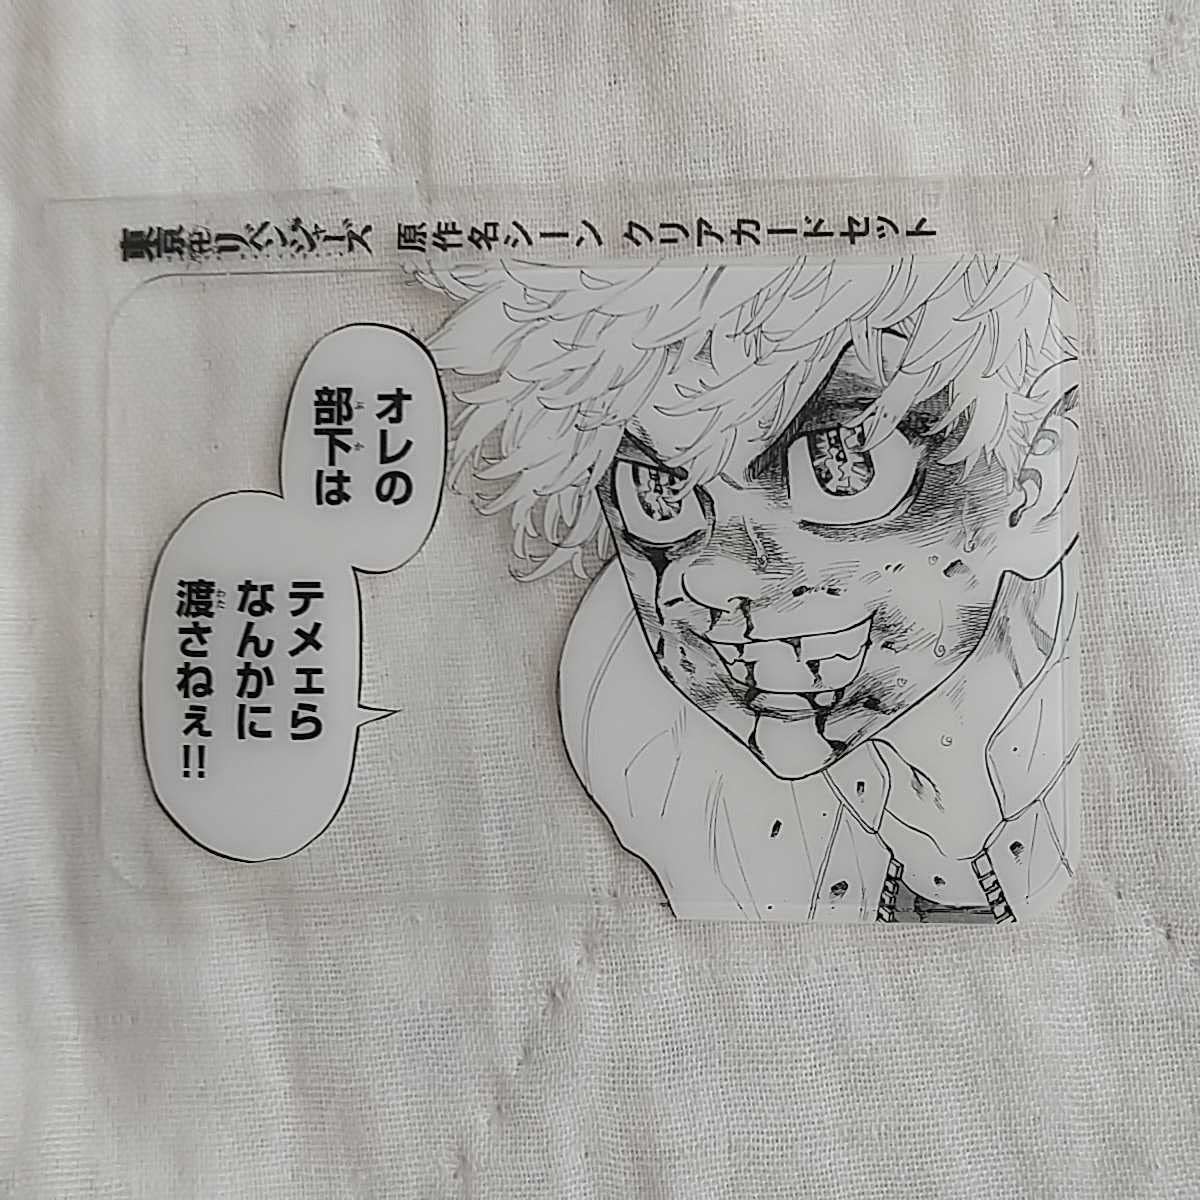 東京卍リベンジャーズ 原作名シーン クリアカードセット
オレの
部下は
テメェら
なんかに
渡さねぇ!!